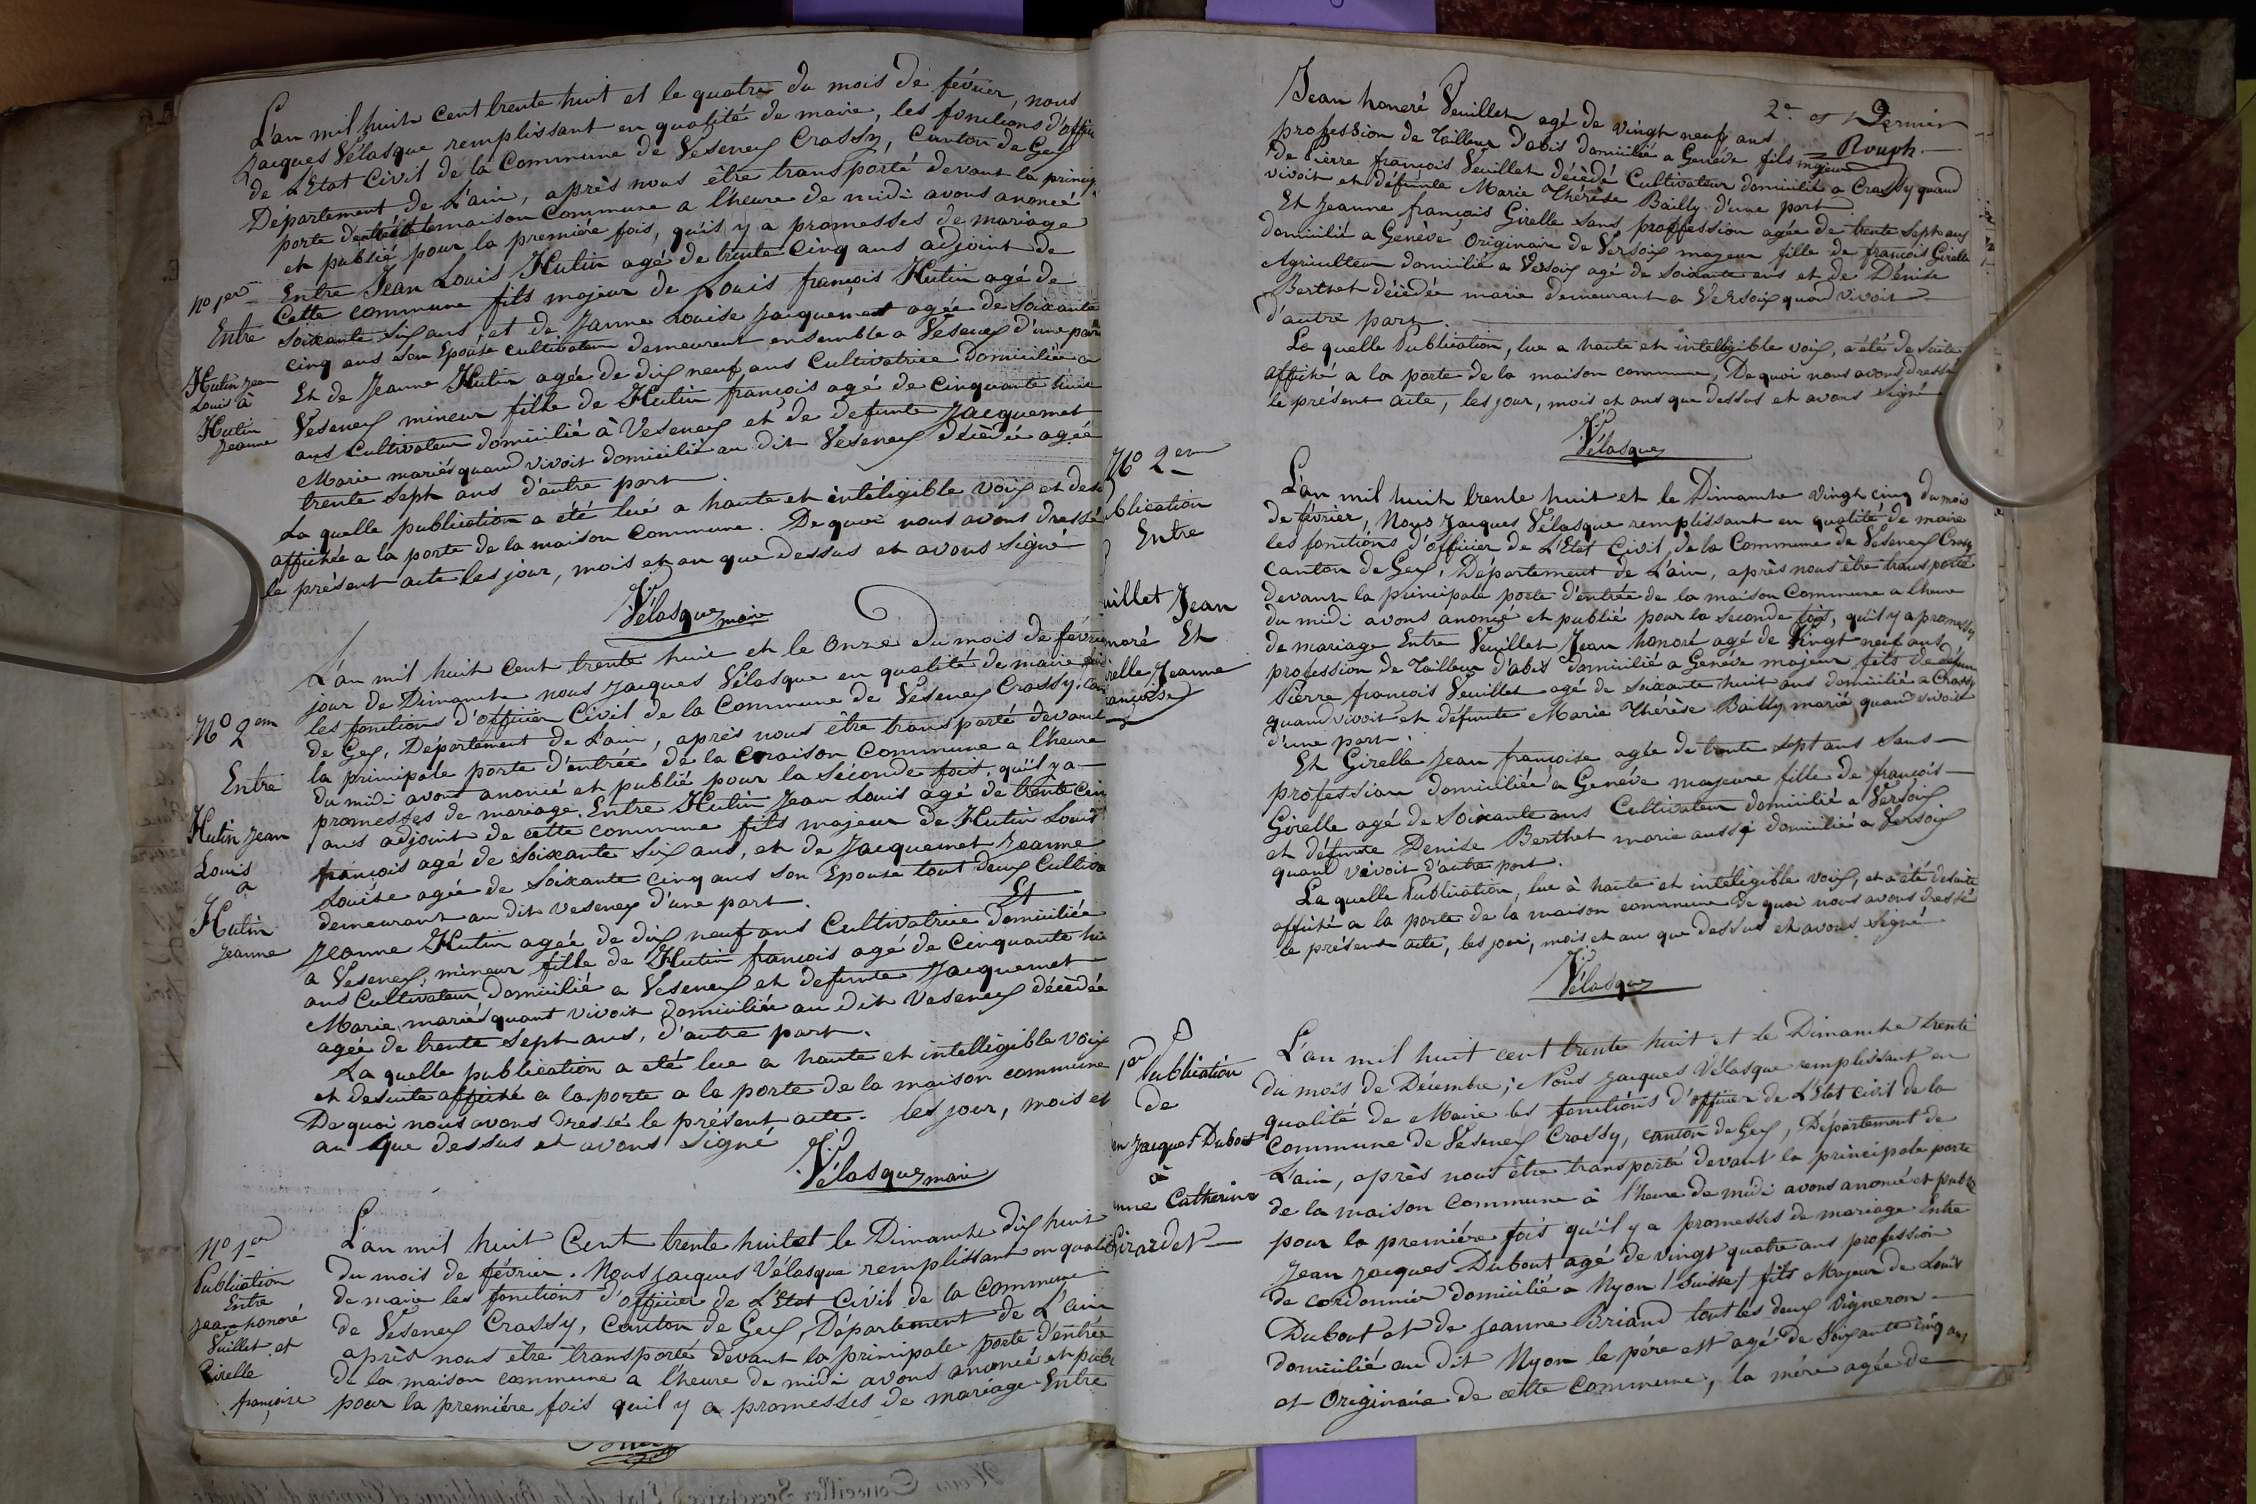 L'an mil huit cent trente huit et le quatre du mois de février, nous
Jacques Vélasque remplissant en qualité de maire, les fonctions d'officier
de L'Etat Civil de la Commune de Vesenex Crassy, Canton de Gex
Département de L'ain, après nous être transporté devant la princip
porte d'entrée de la maison Commune a l'heure de midi avons anoncé
et publié pour la premiere fois, qu'is y a promesses de mariage
no 1er
Entre Jean Louis Hutin agé de trente Cinq ans adjoint de
Cette commune fils majeur de Louis françois Hutin agé de
Entre
soixante six ans et de Janne Louise Jacquemet agée de soixante
cinq ans son Epouse cultivateur demeureur ensemble a Vesenex d'une part
Hutin Jean
Louis à
Hutin
Jeanne
Et de Jeanne Hutin agée de dix neuf ans Cultivatrice domiciliée a
Vesenex mineur fille de Hutin françois agé de Cinquante huit
ans Cultivateur domicilié à Vesenex et de defunte Jacquemet
Marie mariés quand vivoit domicilié au dit Vesenex décèdée agée
trente sept ans d'autre part.
La quelle publication a été lué a haute et intéligible voix et de
affichée a la porte de la maison Commune. De quoi nous avons dressé
le présent acte les jour, mois et an que dessus et avons signé
Vélasque maire
L'an mil huit cent trente huit et le onze du mois de févrie
jour de Dimanche nous Jacques Vélasque en qualité de maire
les fonctions d'officier Civil de la Commune de Vesenex Crassy, Can
No 2em
de Gex, Département de L'ain, après nous être transporté devant
la principale porte d'entrée de la maison Commune a l'heure
Entre
du midi avons anoncé et publié pour la séconde fois, qu'il y a
promesses de mariage. Entre Hutin Jean Louis agé de trente Cin
Hutin Jean
Louis
a
Hutin
Jeanne
ans adjoint de cette commune fils majeur de Hutin Louis
françois agé de soixante six ans, et de Jacquemet Jeanne
Louise agée de soixante cinq ans son Epouse tout deux Cultiva
demeurant au dit Vesenex d'une part. Et
Jeanne Hutin agée de dix neuf ans Cultivatrice domiciliée
a Vesenex, mineur fille de Hutin francois agé de Cinquante hu
ans Cultivateur domicilié a Vesenex et defunte Jacquemet
Marie, mariés quant vivoit domiciliée au dit Vesenex décèdée
agée de trente sept ans, d'autre part.
La quelle publication a eté lue a haute et intelligible voix
et desuite affiché a la porte a la porte de la maison commune
De quoi nous avons dressé le présent acte. les jour, mois et
an que dessus et avons signé
Vélasque maire
No 1er
Publication
Entre
Jean honoré
Vuillet et
Girelle
françoise
L'an mil huit Cent trente huit et le Dimanche dix huit
du mois de février. Nous Jacques Vélasque remplissant en qualité
de maire les fonctions d'officier de L'Etat Civil de la commune
de Vesenex Crassy, Canton de Gex, Département de L'ain
après nous être transporté devant la principale porte d'entrée
de la maison commune a l'heure de midi avons anoncé et publ
pour la première fois quil y a promesses de mariage Entre
Jean honoré Veuillet agé de vingt neuf ans
2e et Dernier
Rouph
profession de Tailleur d'abis domicilié a Genève fils majeur
de Pierre françois Veuillet décédé Cultivateur domicilié a Crassy quand
vivoit et défunte Marie Thérèse Bailly d'une part
Et Jeanne françois Girelle sans profession agée de trente sept ans
domicilié a Genève Originaire de Versoix majeur fille de françois Girelle
Agriculteur domicilié a Versoix agé de soixante ans et de Dénise
Berthet décédée marie demeurant a Versoix quand vivoit
d'autre part.
La quelle Publication, lue a haute et intelligible voix, a été de suite
affiché a la porte de la maison commune, De quoi nous avons dressé
le présent acte, les jour, mois et ans que dessus et avons signé
Vélasque
No 2em
blication
Entre
uillet Jean
noré Et
irelle Jeanne
ançoise
L'an mil huit trente huit et le Dimanche vingt cinq du mois
de février, Nous Jacques Vélasque remplissant en qualité de maire
les fonctions d'officier de L'Etat Civil de la Commune de Vesenex Crassy
Canton de Gex, Département de L'ain, après nous être transporté
devant la principale porte d'entrée de la maison Commune a l'heure
du midi avons anoncé et publié pour la seconde fois, qu'il y a promesses
de mariage Entre Veuillet Jean honoré agé de Vingt neuf ans
profession de Tailleur d'abis domicilié a Genève majeur fils de défun
Pierre francois Veuillet agé de soixante huit ans domicilié a Crassy
quand vivoit et défunte Marie Thérèse Bailly marié quand vivoit
d'une part.
Et Girelle Jean françoise agée de trente sept ans sans
profession domiciliée a Genève majeure fille de françois
Girelle agé de soixante ans Cultivateur domicilié a Versoix
et défunte Denise Berthet marie aussi domicilié a Versoix
quand vévoit d'autre part.
La quelle Publication, lue à haute et intéligible voix, et a été desuite
affiché a la porte de la maison commune De quoi nous avons dressé
le présent acte, les jour, mois et an que dessus et avons signé
Vélasque
1er Publication
de
an Jacques Dubout
à
nne Catherine
Girardet
L'an mil huit cent trente huit et le Dimanche trente
du mois de Décembre; Nous Jacques Vélasque remplissant en
qualité de Maire les fonctions d'officier de L'Etat civil de la
Commune de Vesenex Crassy, canton de Gex, Département de
L'ain, après nous être transporté devant la principale porte
de la maison Commune à l'heure de midi avons anoncé et publié
pour la première fois qu'il y a promesses de mariage Entre
Jean Jacques Dubout agé de vingt quatre ans profession
de cordonnier domicilié a Nyon (Suisse) fils Majeur de Louis
Dubout et de Jeanne Briand tout les deux Vigneron
domicilié au dit Nyon le père est agé de soixante cinq ans
et Originaire de cette Commune, la mère agée de